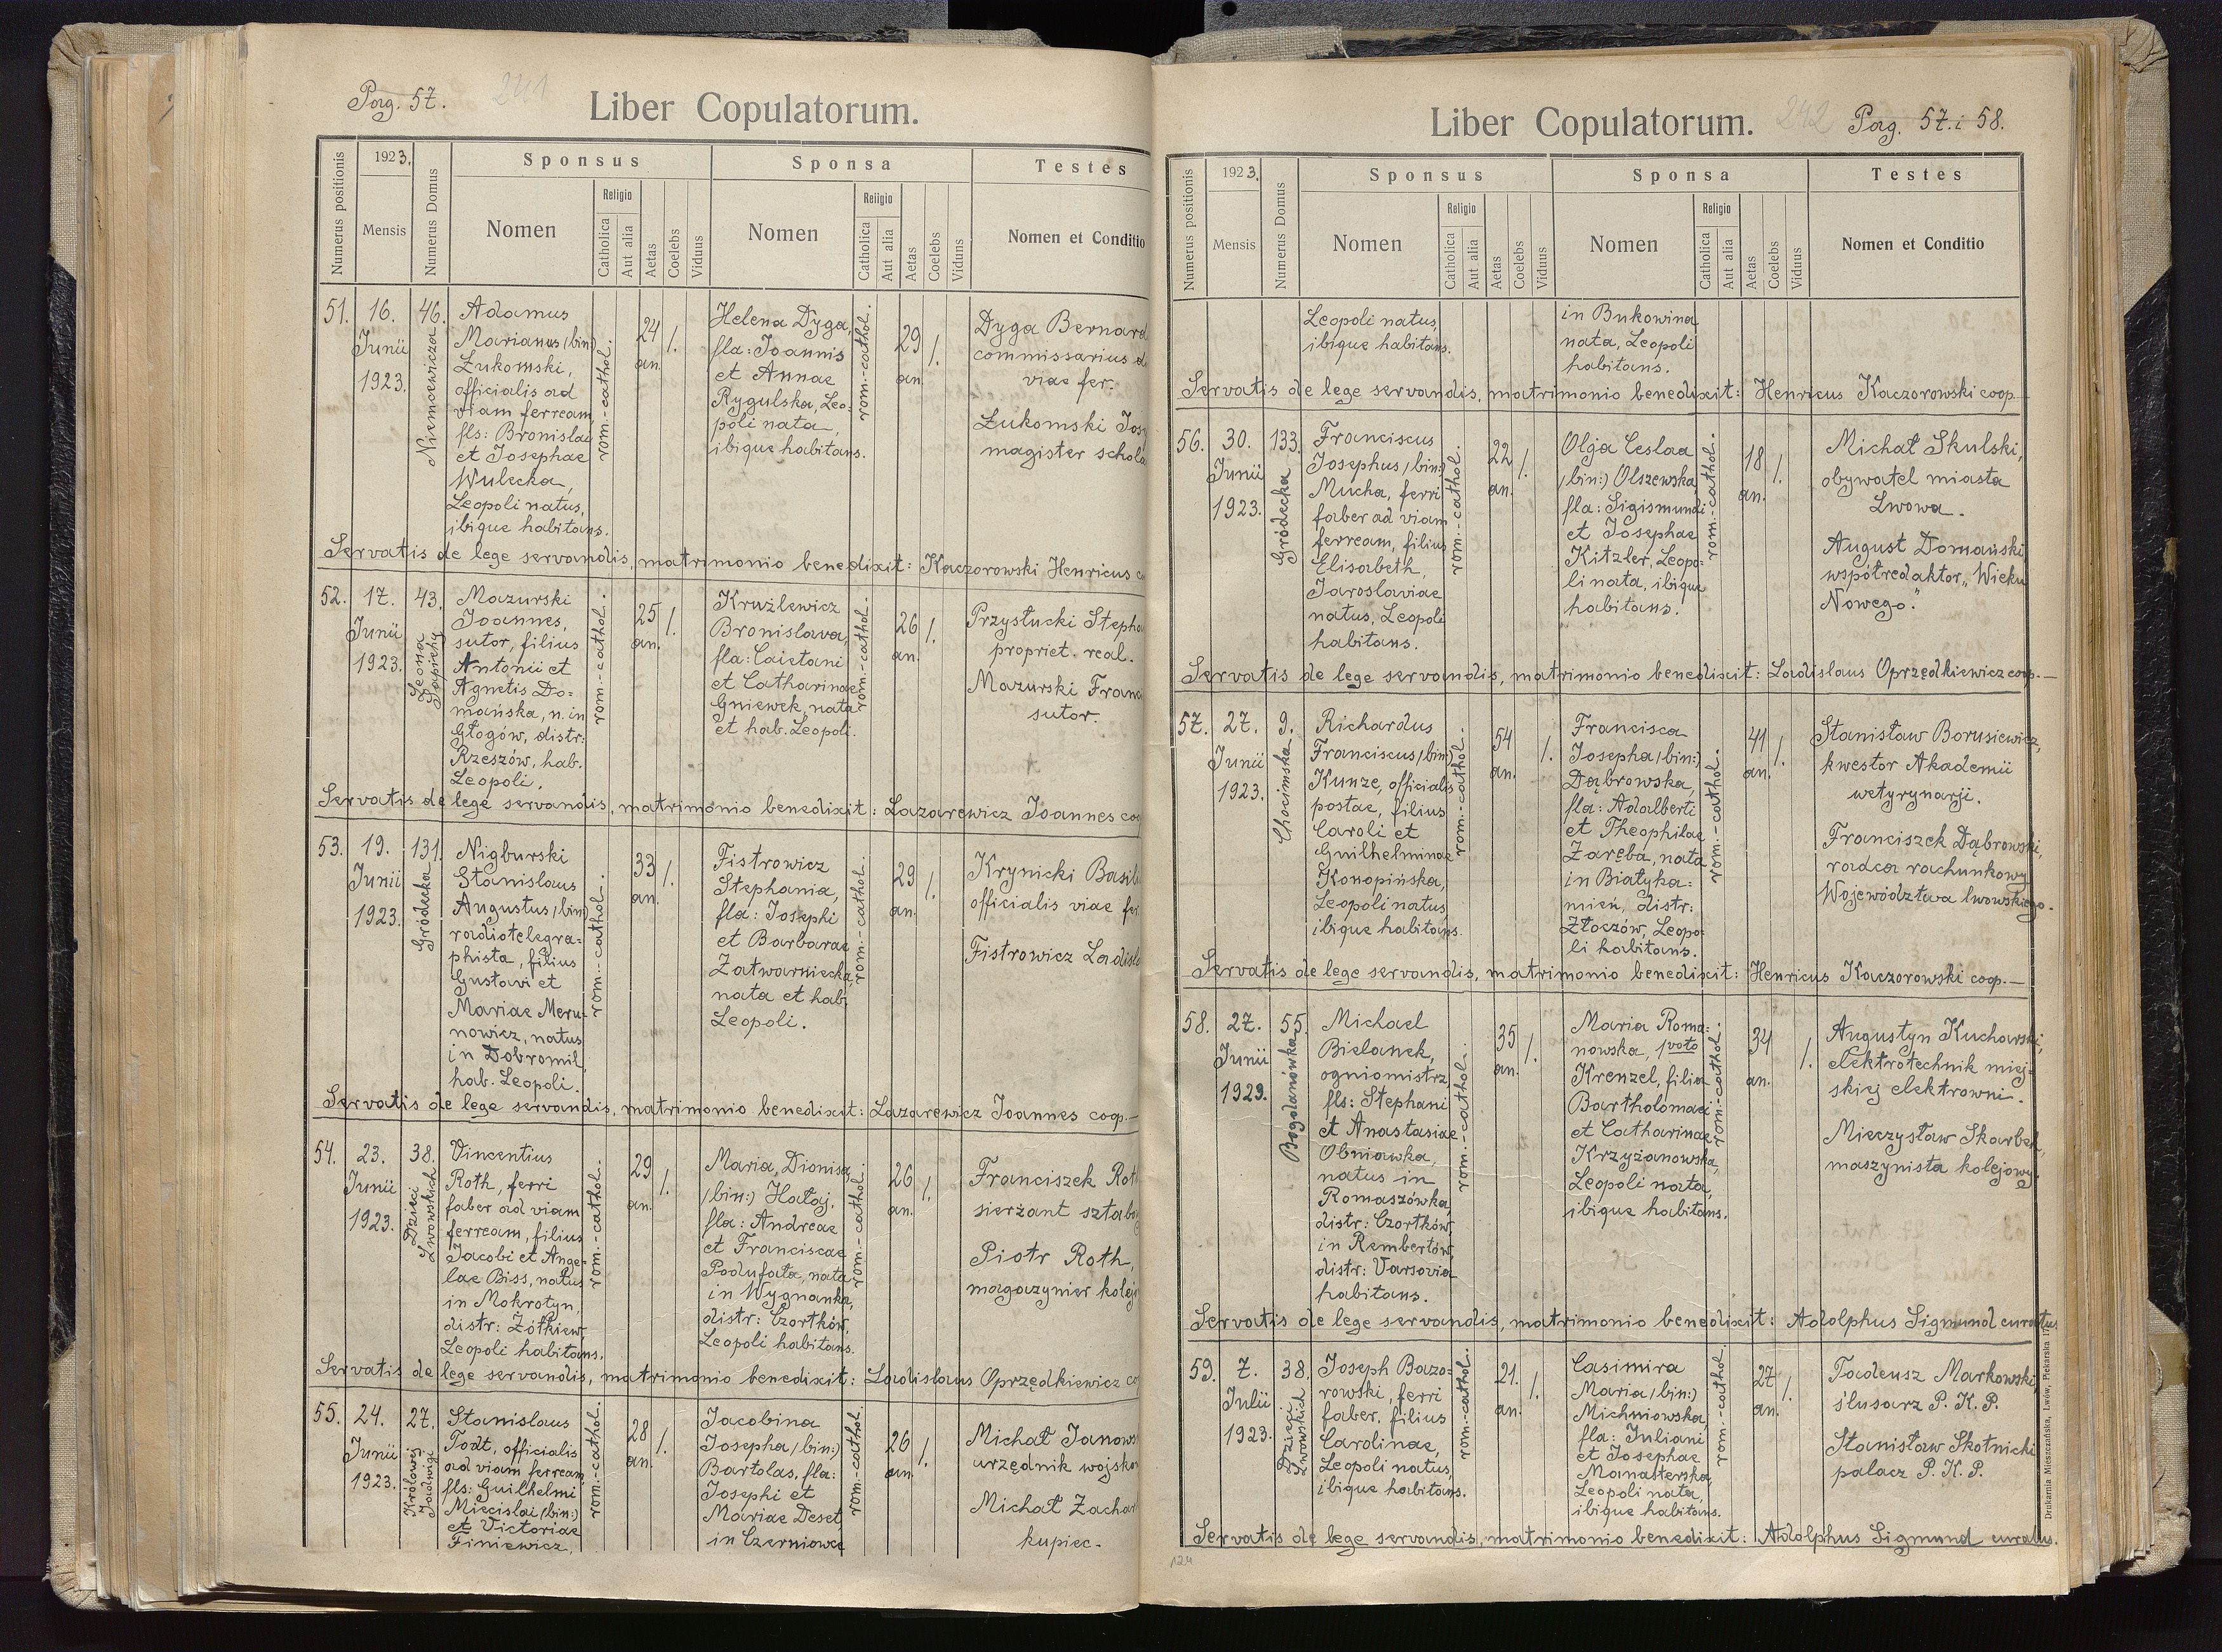 Pag. 57. 241
Liber Copulatorum.
Numerus positionis
1923.
Mensis
Numerus Domus
Sponsus
Nomen
Religio
Catholica
Aut alia
Aetas
Coelebs
Viduus
Sponsa
Nomen
Religio
Catholica
Aut alia
Aetas
Coelebs
Viduus
Testes
Nomen et Conditio
51.
16.
Junii
1923.
46.
Niemcewicza
Adamus
Marianus /bin:)
Łukomski,
officialis ad
viam ferream,
fls: Bronislai
et Josephae
Wulecka,
Leopoli natus,
ibique habitans.
rom.-cathol.
24
an.
/.
Helena Dyga,
fla: Joannis
et Annae
Rygulska, Leo:
poli nata,
ibique habitans.
rom.-cathol.
29
an.
/.
Dyga Bernard
commissarius
viae fer.
Łukomski
magister
Servatis de lege servandis, matrimonio benedixit: Kaczorowski Henricus
52.
17.
Junii
1923.
43.
Leona
Sapiehy
Mazurski
Joannes,
sutor, filius
Antonii et
Agnetis Do=
mańska, n. in
Głogów, distr:
Rzeszów, hab.
Leopoli.
rom.-cathol.
25
an.
/.
Kruźlewicz
Bronislava,
fla: Caietani
et Catharinae
Gniewek, nata
et hab. Leopoli.
rom.-cathol.
26
an.
/.
Przysłucki
propriet. real.
Mazurski
sutor.
Servatis de lege servandis, matrimonio benedixit: Lazarewicz Joannes
53.
19.
Junii
1923.
131.
Gródecka
Nigburski
Stanislaus
Augustus /bin:)
radiotelegra=
phista, filius
Gustavi et
Mariae Meru=
nowicz, natus
in Dobromil,
hab. Leopoli.
rom.-cathol.
33
an.
/.
Fistrowicz
Stephania,
fla: Josephi
et Barbarae
Zatwarniecka,
nata et hab.
Leopoli.
rom.-cathol.
29
an.
/.
Krynicki
officialis viae
Fistrowicz
Servatis de lege servandis, matrimonio benedixit: Lazarewicz Joannes coop.—
54.
23.
Junii
1923.
38.
Dzieci
Lwowskich
Vincentius
Roth, ferri
faber ad viam
ferream, filius
Jacobi et Ange=
lae Biss, natus
in Mokrotyn,
distr: Żółkiew,
Leopoli habitans.
rom.-cathol.
29
an.
/.
Maria Dionisa
/bin:) Hałaj,
fla: Andreae
et Franciscae
Podufała, nata
in Wygnanka,
distr: Czortków,
Leopoli habitans.
rom.-cathol.
26
an.
/.
Franciszek
sierżant
Piotr Roth,
magazynier
Servatis de lege servandis, matrimonio benedixit: Ladislaus Oprzędkiewicz
55.
24.
Junii
1923.
27.
Królowej
Jadwigi
Stanislaus
Todt, officialis
ad viam ferream,
fls: Guilhelmi
Miecislai /bin:)
et Victoriae
Finiewicz,
rom.-cathol.
28
an.
/.
Jacobina
Josepha /bin:)
Bartolas, fla:
Josephi et
Mariae Deset,
in Czerniowce
rom.-cathol.
26
an.
/.
Michał
urzędnik
Michał
kupiec.
Liber Copulatorum. 242 Pag. 57. i 58.
Numerus positionis
1923.
Mensis
Numerus Domus
Sponsus
Nomen
Religio
Catholica
Aut alia
Aetas
Coelebs
Viduus
Sponsa
Nomen
Religio
Catholica
Aut alia
Aetas
Coelebs
Viduus
Testes
Nomen et Conditio
Leopoli natus,
ibique habitans.
in Bukowina
nata, Leopoli
habitans.
Servatis de lege servandis, matrimonio benedixit: Henricus Kaczorowski coop.
56.
30.
Junii
1923.
133.
Gródecka
Franciscus
Josephus /bin:)
Mucha, ferri
faber ad viam
ferream, filius
Elisabeth,
Jaroslaviae
natus, Leopoli
habitans.
rom.-cathol.
22
an.
/.
Olga Ceslaa
/bin:) Olszewska,
fla: Sigismundi
et Josephae
Kitzler, Leopo=
li nata, ibique
habitans.
rom.-cathol.
18
an.
/.
Michał Skulski,
obywatel miasta
Lwowa.
August Domański
współredaktor „Wieku
Nowego."
Servatis de lege servandis, matrimonio benedixit: Ladislaus Oprzędkiewicz coop.—
57.
27.
Junii
1923.
9.
Chocimska
Richardus
Franciscus /bin:)
Kunze, officialis
postae, filius
Caroli et
Guilhelminae
Konopińska,
Leopoli natus,
ibique habitans.
rom.-cathol.
54
an.
/.
Francisca
Josepha /bin:)
Dąbrowska,
fla: Adalberti
et Theophilae
Zaręba, nata
in Białyka=
mień, distr:
Złoczów, Leopo=
li habitans.
rom.-cathol.
41
an.
/.
Stanisław Borusiewicz,
kwestor Akademii
wetyrynarji.
Franciszek Dąbrowski,
radca rachunkowy
Województwa lwowskiego.
Servatis de lege servandis, matrimonio benedixit: Henricus Kaczorowski coop.—
58.
27.
Junii
1923.
55.
Bogdanówka
Michael
Bielanek,
ogniomistrz,
fls: Stephani
et Anastasiae
Obniawka,
natus in
Romaszówka,
distr: Czortków,
in Rembertów,
distr: Varsovia
habitans.
rom.-cathol.
35
an.
/.
Maria Roma=
nowska, 1voto
Krenzel, filia
Bartholomaei
et Catharinae
Krzyżanowska,
Leopoli nata,
ibique habitans.
rom.-cathol.
34
an.
/.
Augustyn Kucharski,
elektrotechnik miej=
skiej elektrowni.
Mieczysław Skarbek,
maszynista kolejowy.
Servatis de lege servandis, matrimonio benedixit: Adolphus Sigmund curatus
59.
7.
Julii
1923.
38.
Dzieci
Lwowskich
Joseph Bazo=
rowski, ferri
faber, filius
Carolinae,
Leopoli natus,
ibique habitans.
rom.-cathol.
21.
an.
/.
Casimira
Maria /bin:)
Michniowska,
fla: Juliani
et Josephae
Manasterska,
Leopoli nata,
ibique habitans.
rom.-cathol.
27
an.
/.
Tadeusz Markowski,
ślusarz P. K. P.
Stanisław Skotnicki
palacz P. K. P.
Servatis de lege servandis, matrimonio benedixit: Adolphus Sigmund curatus.
Drukarnia Mieszczańska, Lwów, Piekarska
124